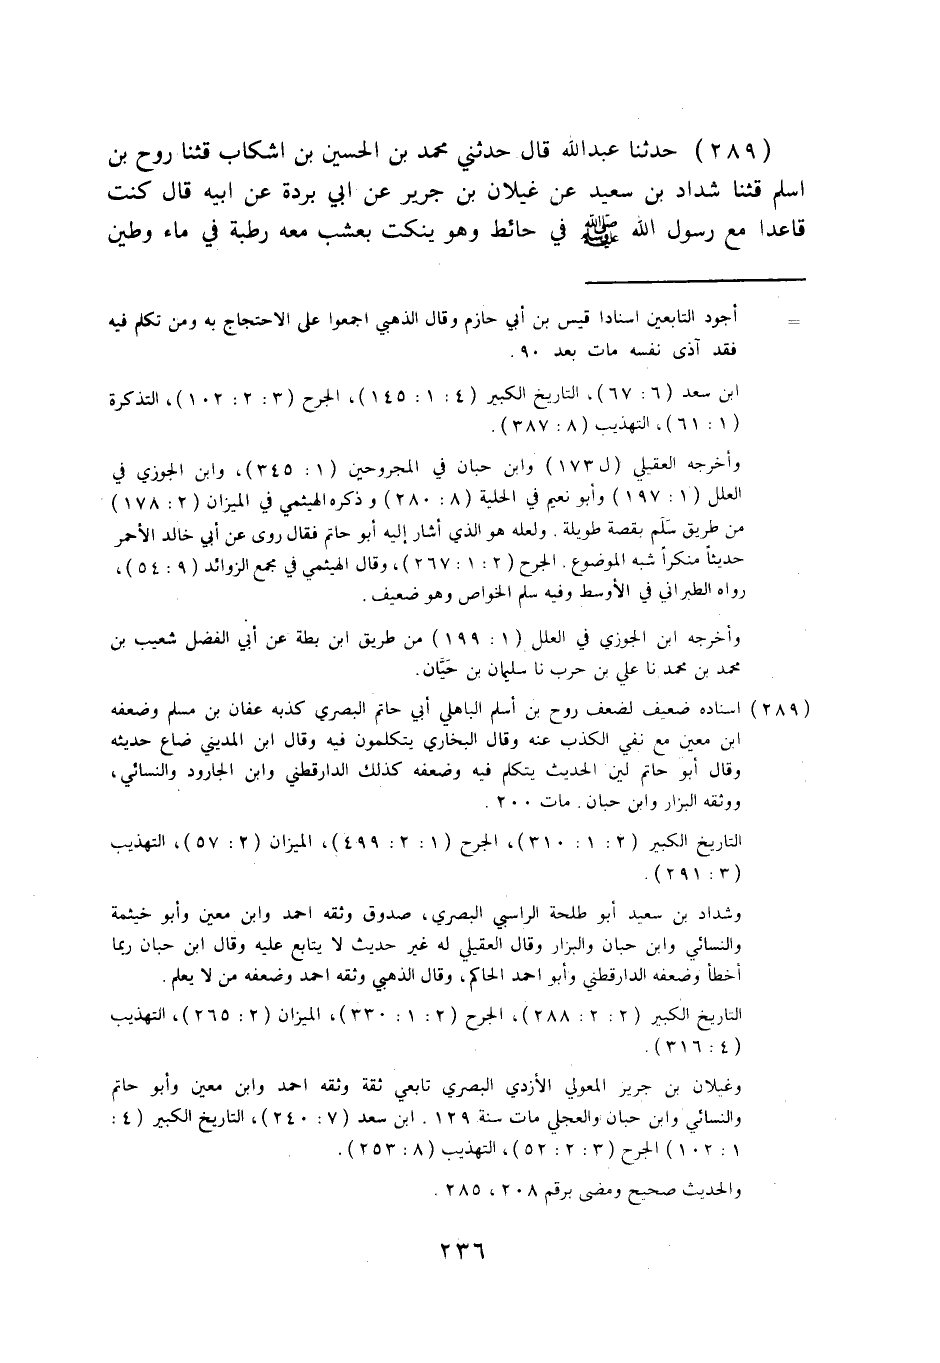 (٢٨٩) حدثنا عبدالله قال حدثني محمد بن الحسين بن اشكاب قثنا روح بن
اسلم قثنا شداد بن سعيد عن غيلان بن جرير عن ابي بردة عن ابيه قال كنت
قاعدا مع رسول الله ﷺ في حائط وهو ينكت بعشب معه رطبة في ماء وطين
= أجود التابعين اسنادا قيس بن أبي حازم وقال الذهبي اجمعوا على الاحتجاج به ومن تكلم فيه
فقد آذى نفسه مات بعد ٩٠.
ابن سعد (٦ : ٦٧)، التاريخ الكبير (٤ : ١ : ١٤٥)، الجرح (٣ : ٢ : ١٠٢)، التذكرة
(١ : ٦١)، التهذيب (٨ : ٣٨٧).
وأخرجه العقيلي (ل ١٧٣) وابن حبان في المجروحين (١ : ٣٤٥)، وابن الجوزي في
العلل (١ : ١٩٧) وأبو نعيم في الحلية (٨ : ٢٨٠) وذكره الهيثمي في الميزان (٢ : ١٧٨)
من طريق سَلَم بقصة طويلة. ولعله هو الذي أشار إليه أبو حاتم فقال روى عن أبي خالد الأحمر
حديثاً منكراً شبه الموضوع. الجرح (٢ : ١ : ٢٦٧)، وقال الهيثمي في مجمع الزوائد (٩ : ٥٤)،
رواه الطبراني في الأوسط وفيه سلم الخواص وهو ضعيف.
وأخرجه ابن الجوزي في العلل (١ : ١٩٩) من طريق ابن بطة عن أبي الفضل شعيب بن
محمد بن محمد نا علي بن حرب نا سليمان بن حَيَّان.
(٢٨٩) اسناده ضعيف لضعف روح بن أسلم الباهلي أبي حاتم البصري كذبه عفان بن مسلم وضعفه
ابن معين مع نفي الكذب عنه وقال البخاري يتكلمون فيه وقال ابن المديني ضاع حديثه
وقال أبو حاتم لين الحديث يتكلم فيه وضعفه كذلك الدارقطني وابن الجارود والنسائي،
ووثقه البزار وابن حبان. مات ٢٠٠.
التاريخ الكبير (٢ : ١ : ٣١٠)، الجرح (١ : ٢ : ٤٩٩)، الميزان (٢ : ٥٧)، التهذيب
(٣ : ٢٩١).
وشداد بن سعيد أبو طلحة الراسبي البصري، صدوق وثقه احمد وابن معين وأبو خيثمة
والنسائي وابن حبان والبزار وقال العقيلي له غير حديث لا يتابع عليه وقال ابن حبان ربما
أخطأ وضعفه الدارقطني وأبو احمد الحاكم، وقال الذهبي وثقه احمد وضعفه من لا يعلم.
التاريخ الكبير (٢ : ٢ : ٢٨٨)، الجرح (٢ : ١ : ٣٣٠)، الميزان (٢ : ٢٦٥)، التهذيب
(٤ : ٣١٦).
وغيلان بن جرير المعولي الأزدي البصري تابعي ثقة وثقه احمد وابن معين وأبو حاتم
والنسائي وابن حبان والعجلي مات سنة ١٢٩. ابن سعد (٧ : ٢٤٠)، التاريخ الكبير (٤ :
١ : ١٠٢) الجرح (٣ : ٢ : ٥٢)، التهذيب (٨ : ٢٥٣).
والحديث صحيح ومضى برقم ٢٠٨، ٢٨٥.
٢٣٦